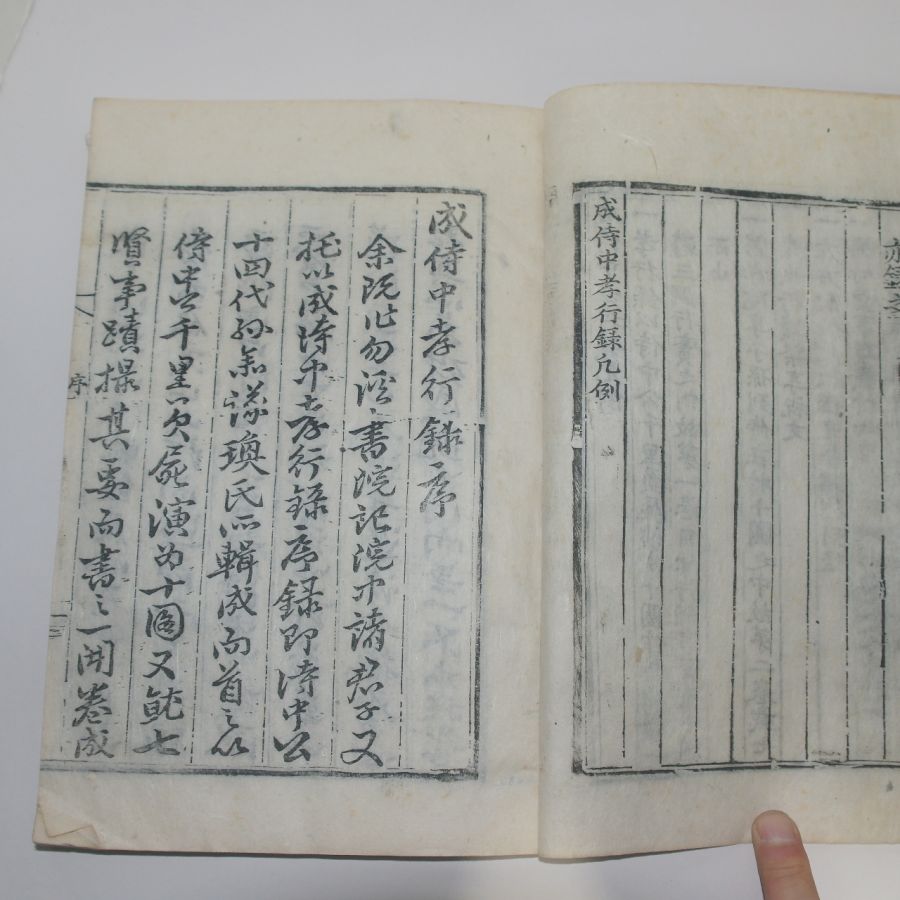 成侍中孝行錄凡例
成侍中孝行錄序
余旣作勿溪書院記院中諸君子又
托以成侍中孝行錄序錄即侍中公
十四代孫氏所輯成而首之以
侍中公千里負屍演為十圖又七
賢事蹟撮其要而書之一開卷成
序